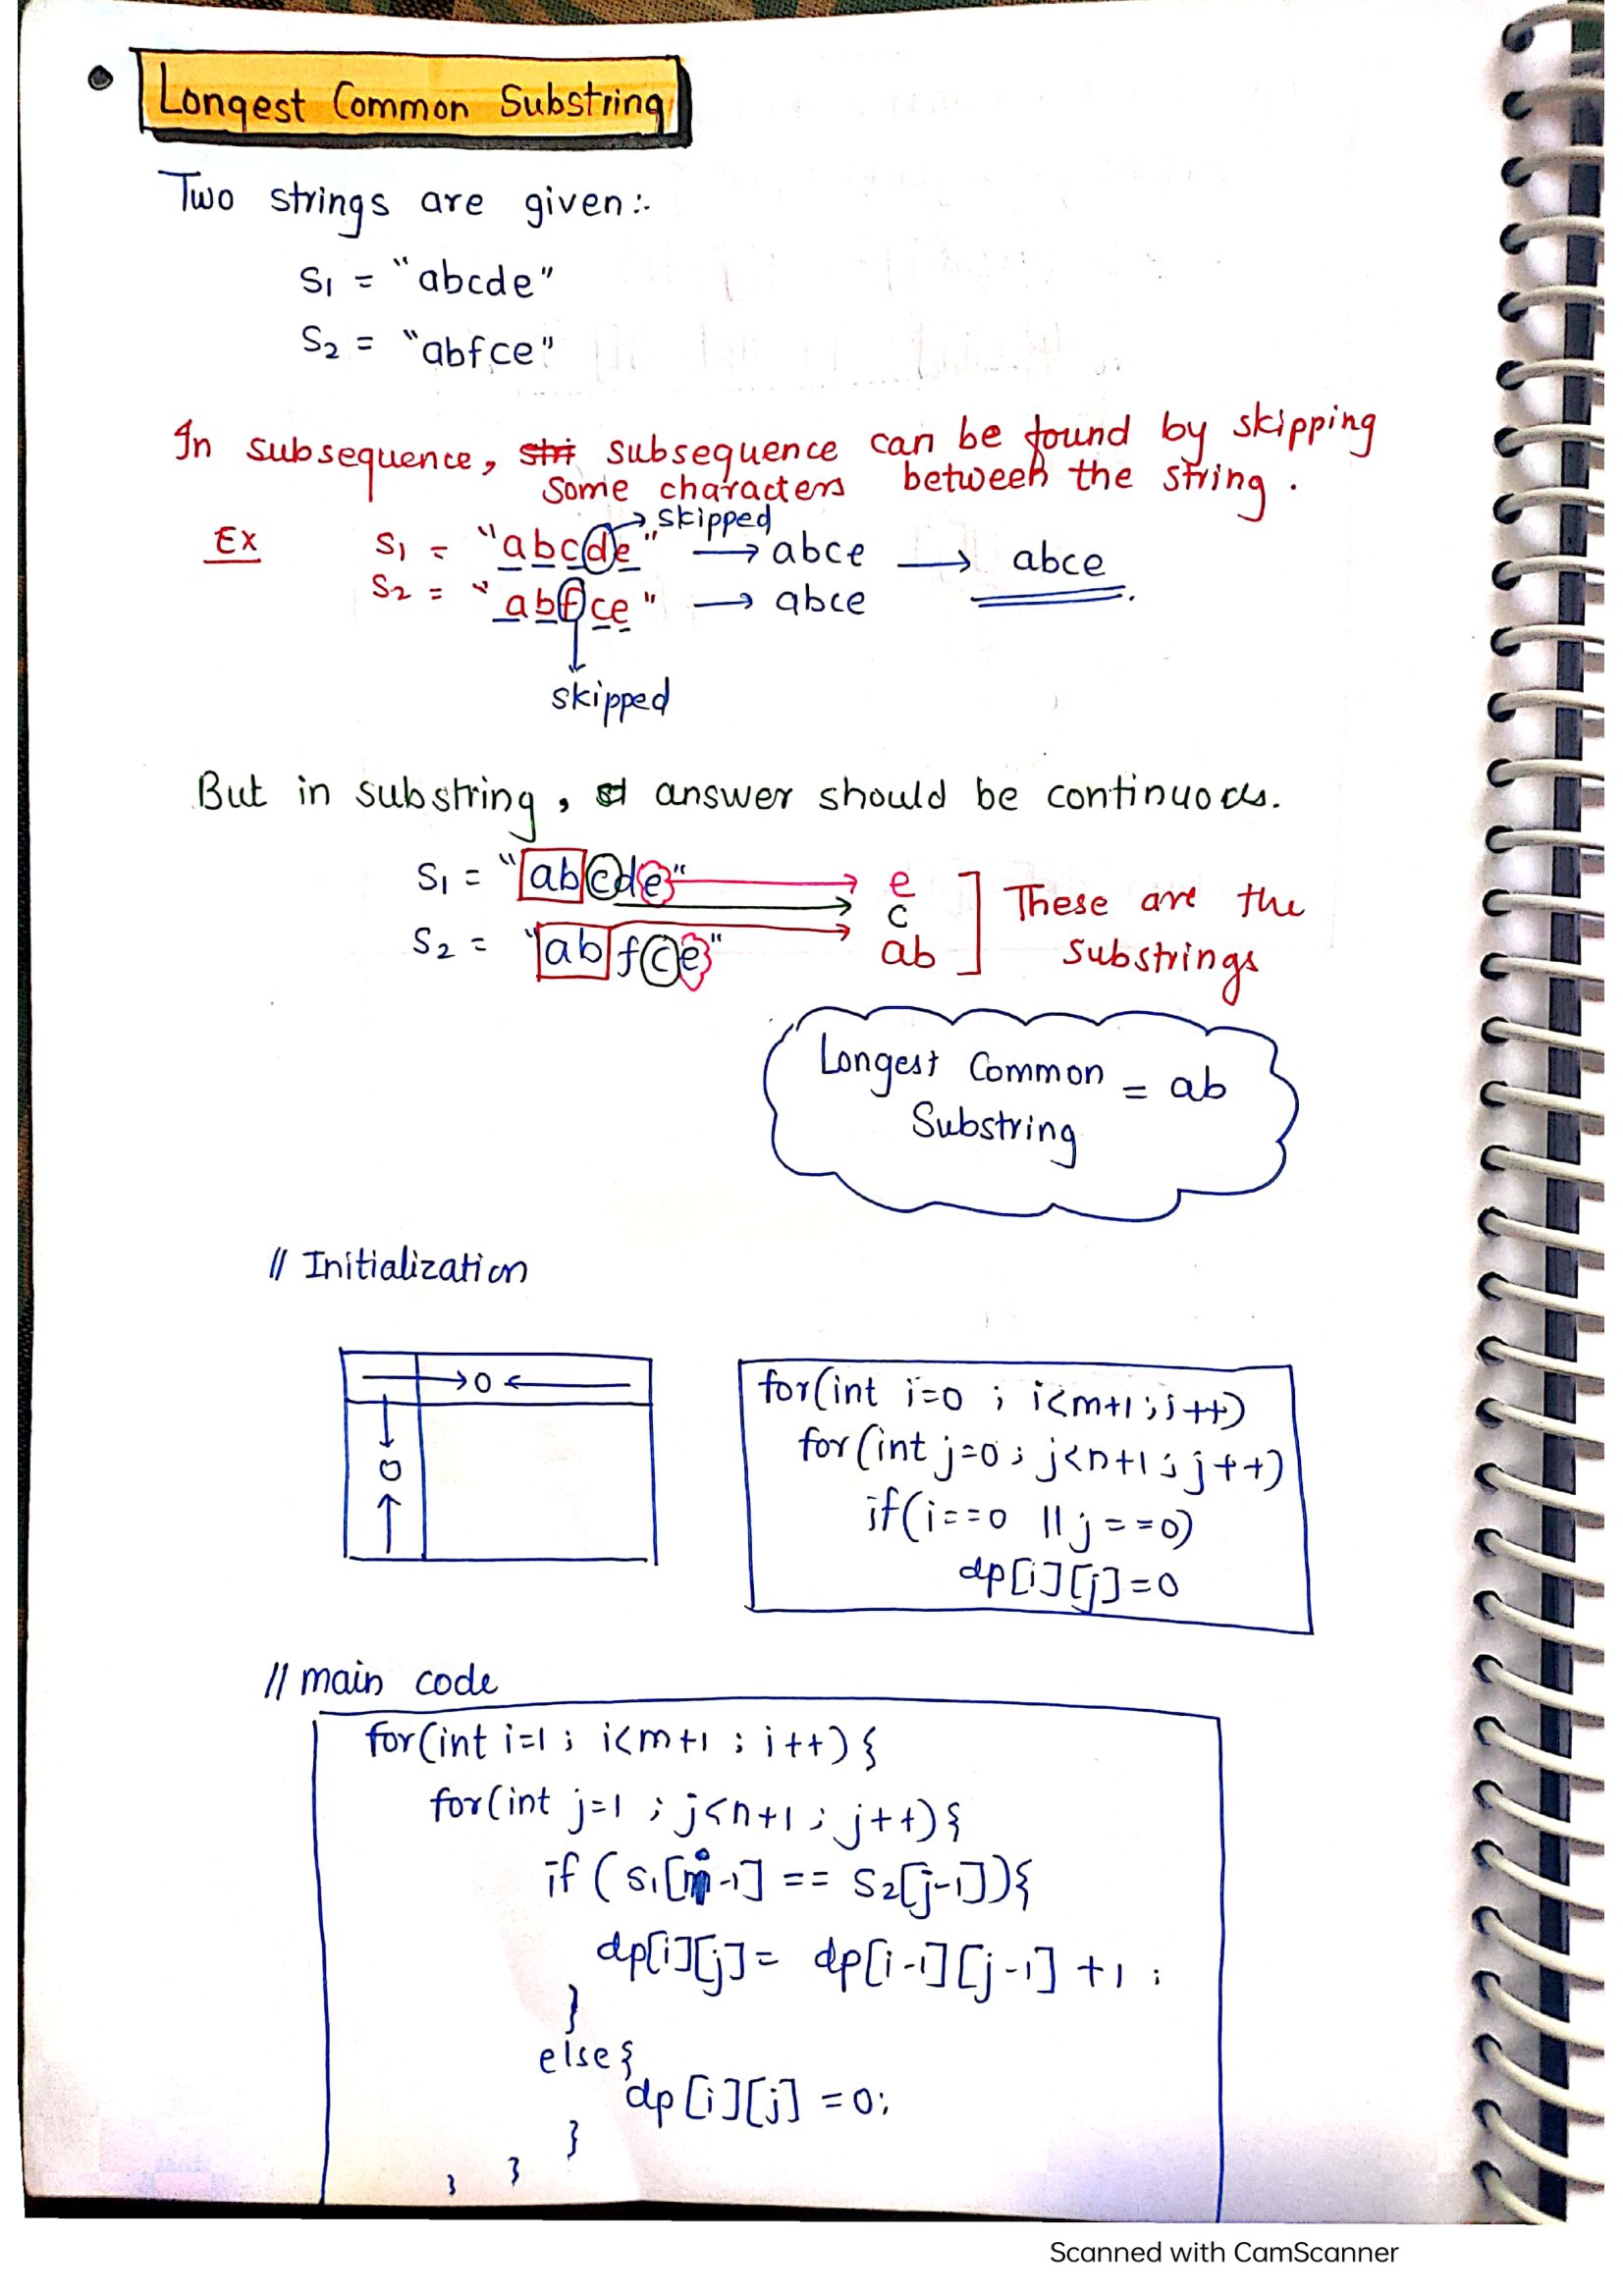 Longest Common Substring
Two strings are given:-
S1 = "abcde"
S2 = "abfce"
In subsequence, stri subsequence can be found by skipping
some characters between the string.
Ex
skipped
S1 = "abcde" → abce → abce
S2 = "abfce" → abce
skipped
But in substring, st answer should be continuous.
S1 = "abcde" e
c
S2 = "abfce" ab
These are the
substrings
Longest Common = ab
Substring
// Initialization
→ 0 ←
↓
0
↑
for(int i=0 ; i<m+1 ; i++)
for(int j=0 ; j<n+1 ; j++)
if(i==0 || j==0)
dp[i][j]=0
// main code
for(int i=1 ; i<m+1 ; i++) {
for(int j=1 ; j<n+1 ; j++) {
if ( S1[i-1] == S2[j-1]) {
dp[i][j] = dp[i-1][j-1] +1 ;
}
else {
dp[i][j] = 0;
}
} }
Scanned with CamScanner